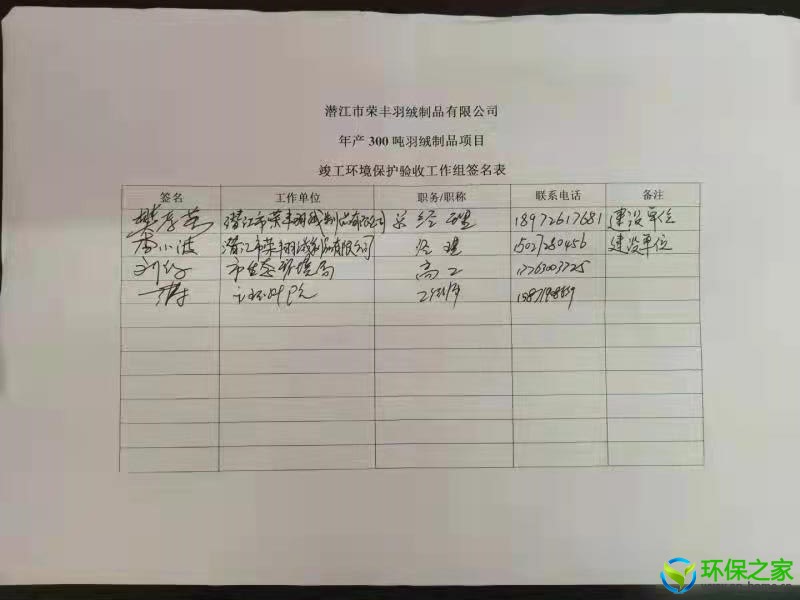 潜江市荣丰羽绒制品有限公司
年产 300 吨羽绒制品项目
竣工环境保护验收工作组签名表
签名 工作单位 职务/职称 联系电话 备注
潜江市荣丰羽绒制品有限公司 总经理 18972617681 建设单位
小波 潜江市荣丰羽绒制品有限公司 经理 建设单位
刘 市生态环境局 高工
工程师
环保之家